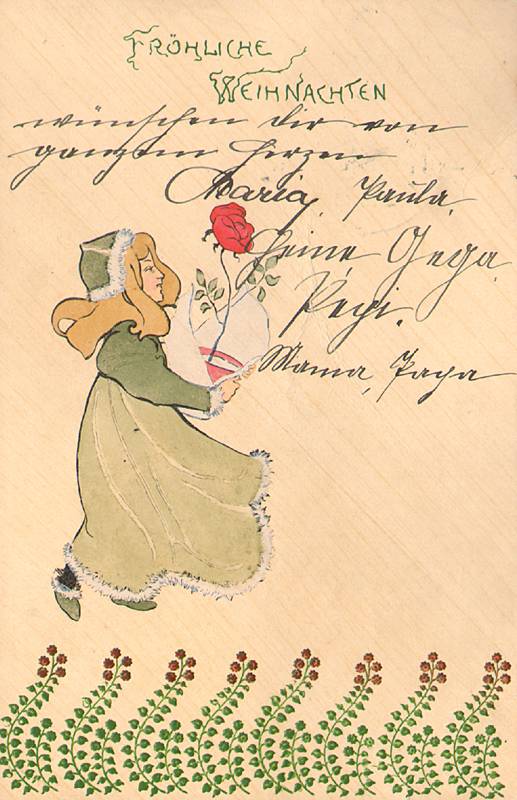 FRÖHLICHE
WEIHNACHTEN
wünschen dir von
ganzem Herzen
Maria, Paula,
Heine, Gega,
Pepi.
Mama, Papa